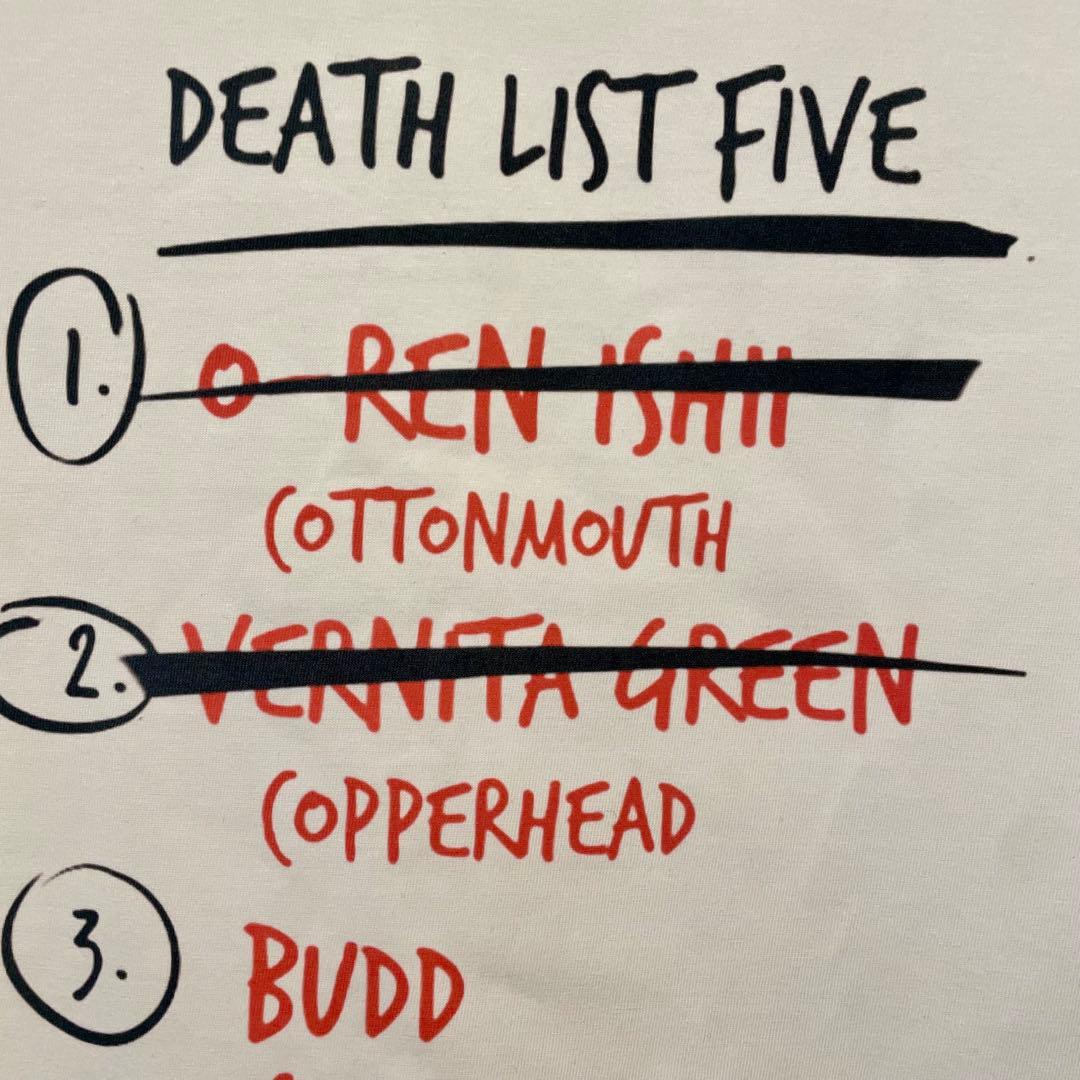 DEATH LIST FIVE
1. O-REN ISHII
COTTONMOUTH
2. VERNITA GREEN
COPPERHEAD
3. BUDD